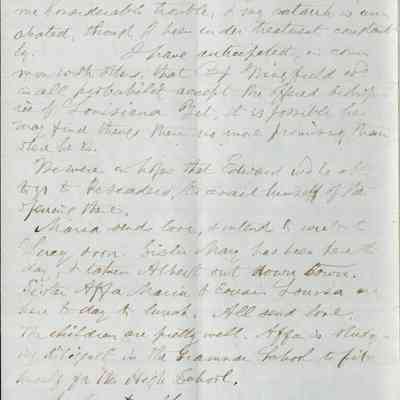 me considerable trouble, & my catarrh is un
abated, though I have been under treatment constant
ly. I have anticipated, in com
mon with others, that Wingfield wd
in all probability accept the offered bishop
ric of Louisiana. Yet, it is possible he
may find things there no more promising than
We were in hopes that Edward wd be able
to go to to avail himself of the
opening there.
Maria sends love, & intends to write to
Lucy soon. Sister Mary has been here to
day, & taken Albert out down town.
Sister Affa Maria & Cousin Louisa are
here to day to lunch. All send love.
The children are pretty well. Affa is study-
ing in the Grammar School to fit
herself for the High School.